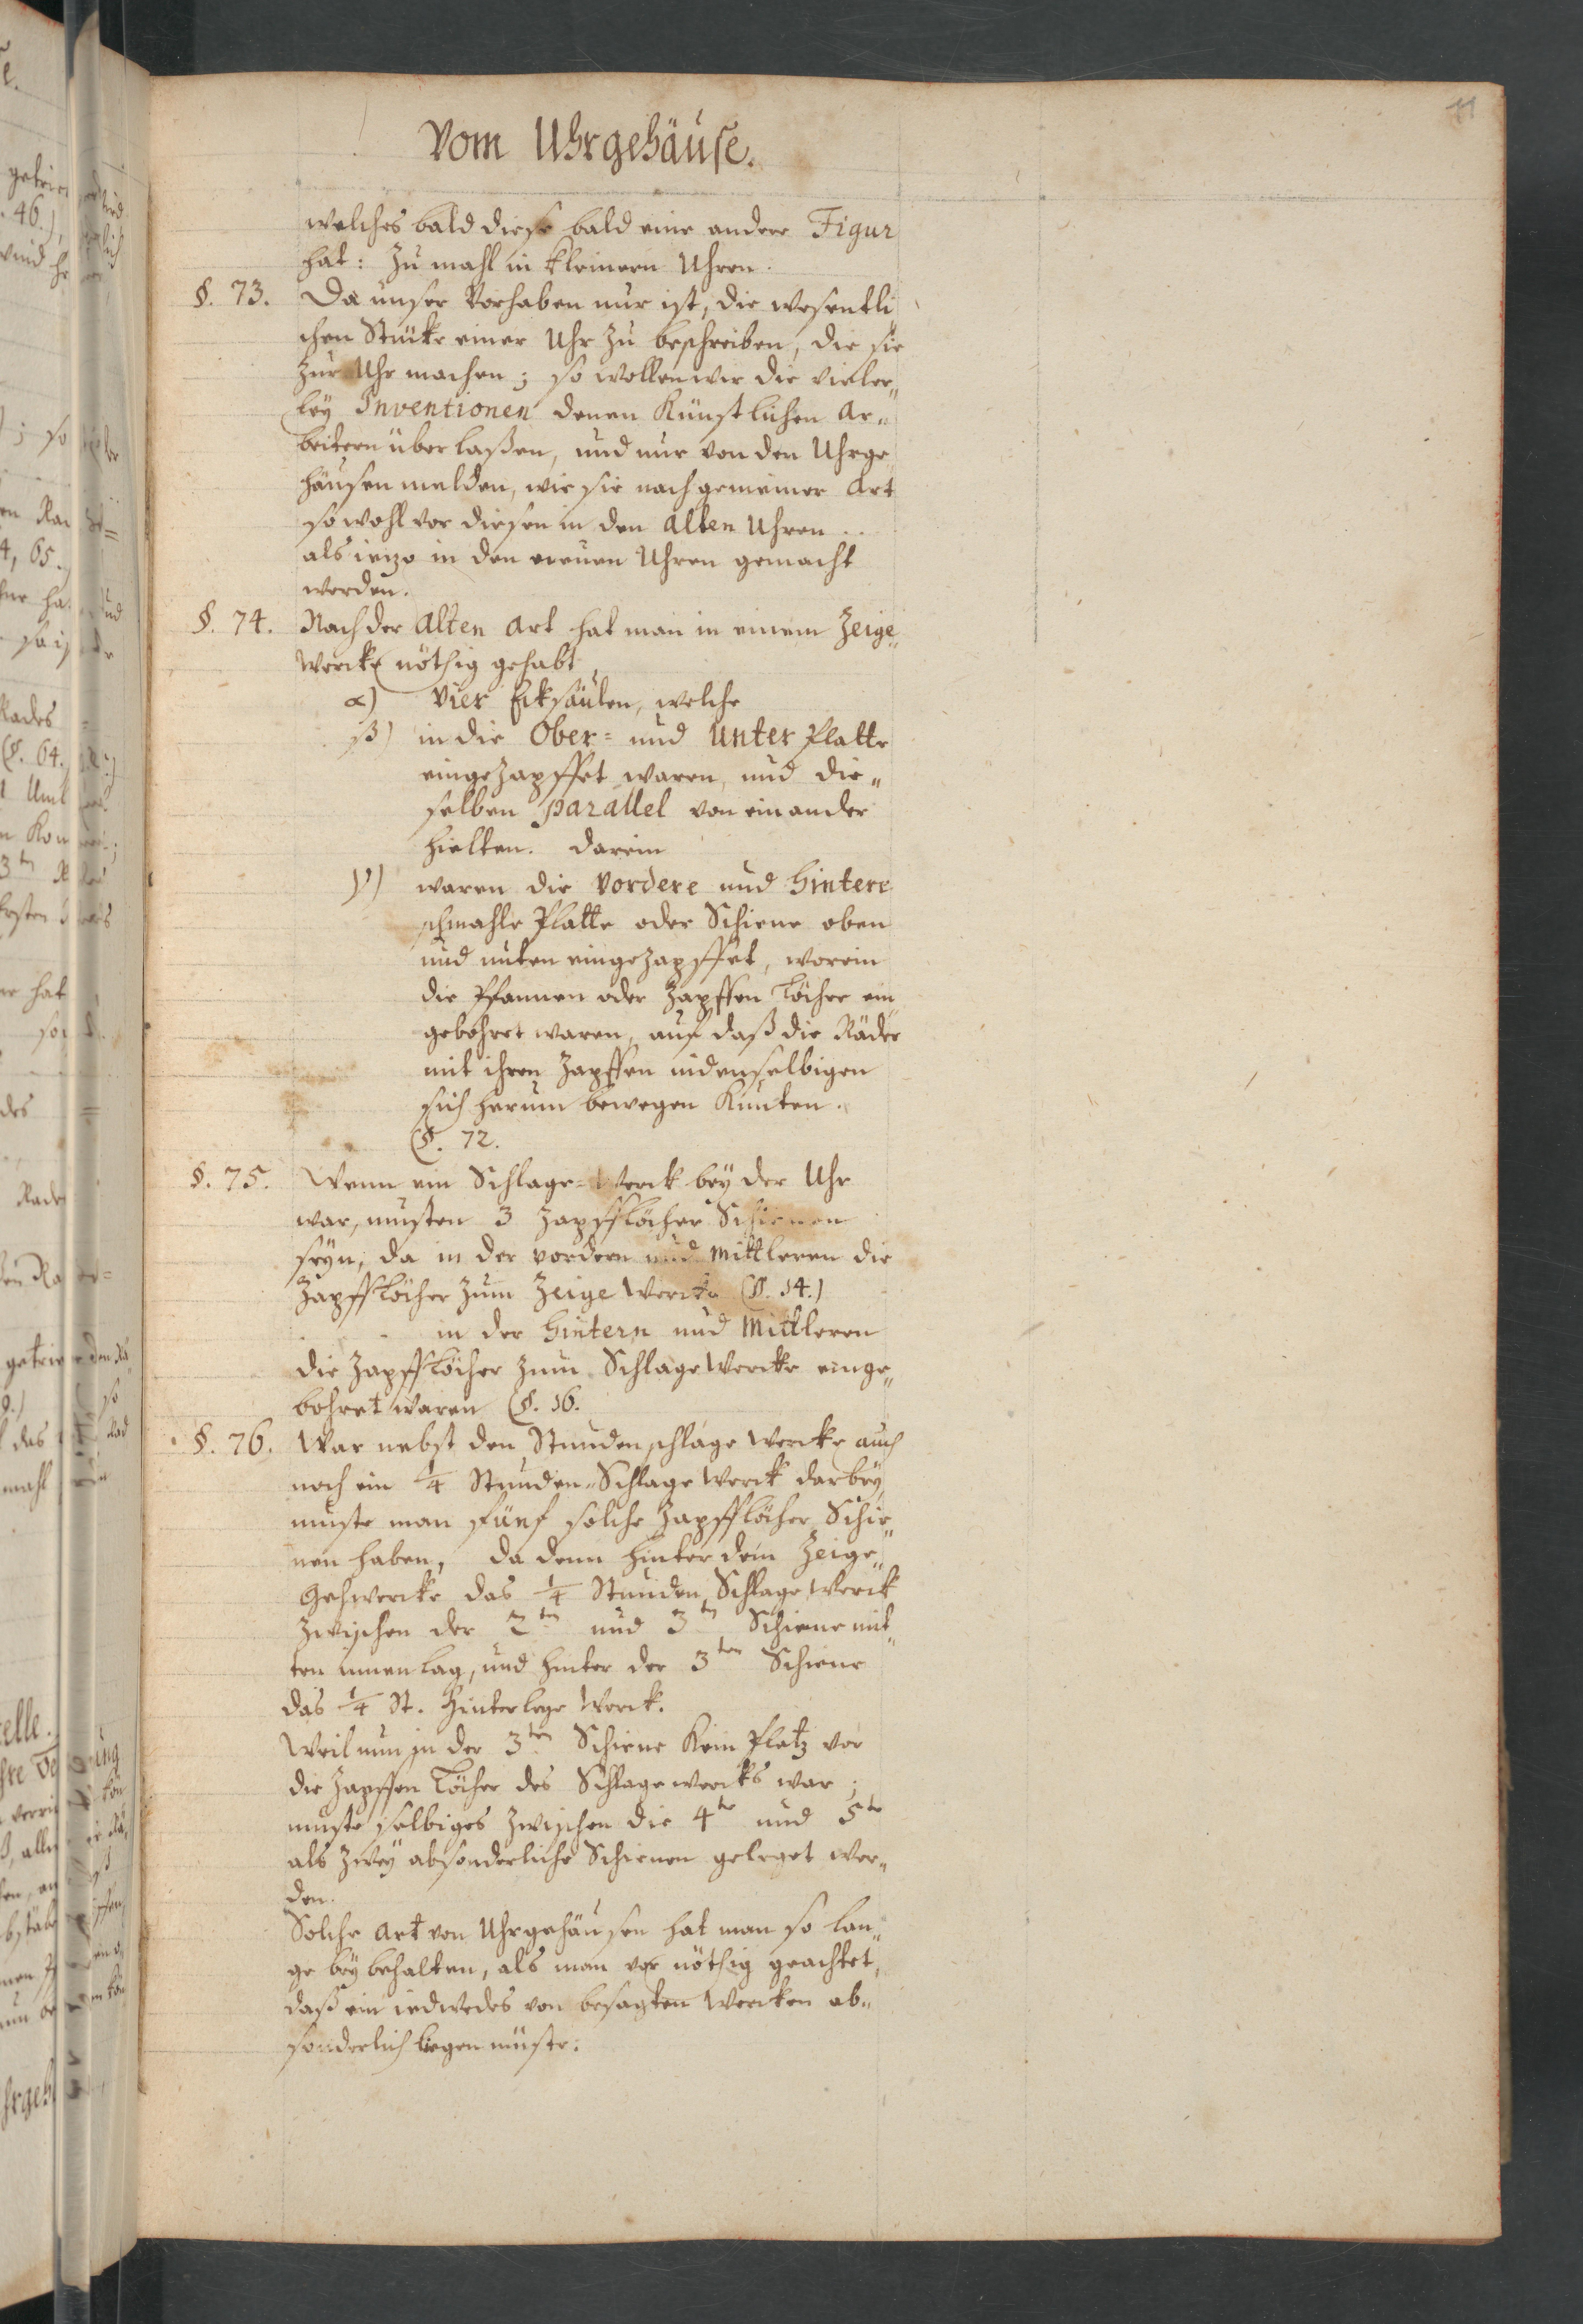 11
Vom Uhrgehäuse.
welches bald diese bald eine andere Figur
hat: Zu mahl in kleinern Uhren.
§. 73. Da unser Vorhaben nur ist, die wesentli
chen Stücke einer Uhr zu beschreiben, die sie
zur Uhr machen; so wollen wir die vieler„
ley Inventionen denen Künstlichen Ar„
beitern überlaßen, und nur von den Uhrge
häusen melden, wie sie nach gemeiner Art
so wohl vor diesen in den Alten Uhren
als ietzo in den neuen Uhren gemacht
werden.
§. 74. Nach der Alten Art hat man in einem Zeige„
Wercke nöthig gehabt
α) Vier Ecksäulen, welche
β) in die Ober= und Unter Platte
eingezapffet waren, und die„
selben parallel von einander
hielten. Darein
γ) waren die Vordere und Hintere
schmahle Platte oder Schiene oben
und unten eingezapffet, worein
die Pfannen oder Zapffen Löcher ein
gebohret waren, auf daß die Räder
mit ihren Zapffen in denselbigen
sich herum bewegen kunten.
(§. 72.
§. 75. Wenn ein Schlage=Werck bey der Uhr
war, musten 3 Zapfflöcher Schienen
seyn, da in der vordern und Mittleren die
Zapfflöcher zum Zeige Wercke (§. 14.)
in der Hintern und Mittleren
die Zapfflöcher zum Schlage Wercke einge„
bohret waren (§. 16.
§. 76. War nebst den Stunden schlage Wercke auch
noch ein 1/4 Stunden„Schlage Werck darbey,
muste man fünf solche Zapfflöcher Schie„
nen haben, da denn hinter dem Zeige„
Gehwercke das 1/4 Stunden Schlage Werck
zwischen der 2ten und 3ten Schiene mit„
ten innen lag, und hinter der 3ten Schiene
das 1/4 St. Hinterlege Werck.
Weil nun in der 3ten Schiene kein Platz vor
die Zapffen Löcher des Schlagewercks war;
muste selbiges zwischen die 4te und 5te
als zwey absonderliche Schienen geleget wer„
den.
Solche Art von Uhrgehäusen hat man so lan„
ge bey behalten, als man vor nöthig geachtet,
daß ein iedwedes von besagten Wercken ab„
sonderlich liegen müste.